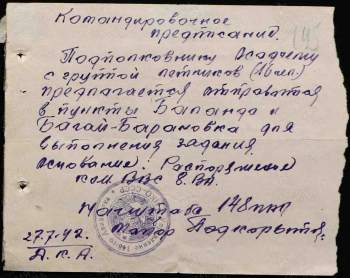 Командировочное
предписание.
145
Подполковнику Осадчему
с группой летчиков (16 чел)
предлагается отправится
в пункты Баланда и
Багай-Барановка для
выполнения задания
Основание: Распоряжение
ком ВВС 8. ВА.
Нач штаба 148 иап
майор Подкорытов
27.7.42.
А.К.А.